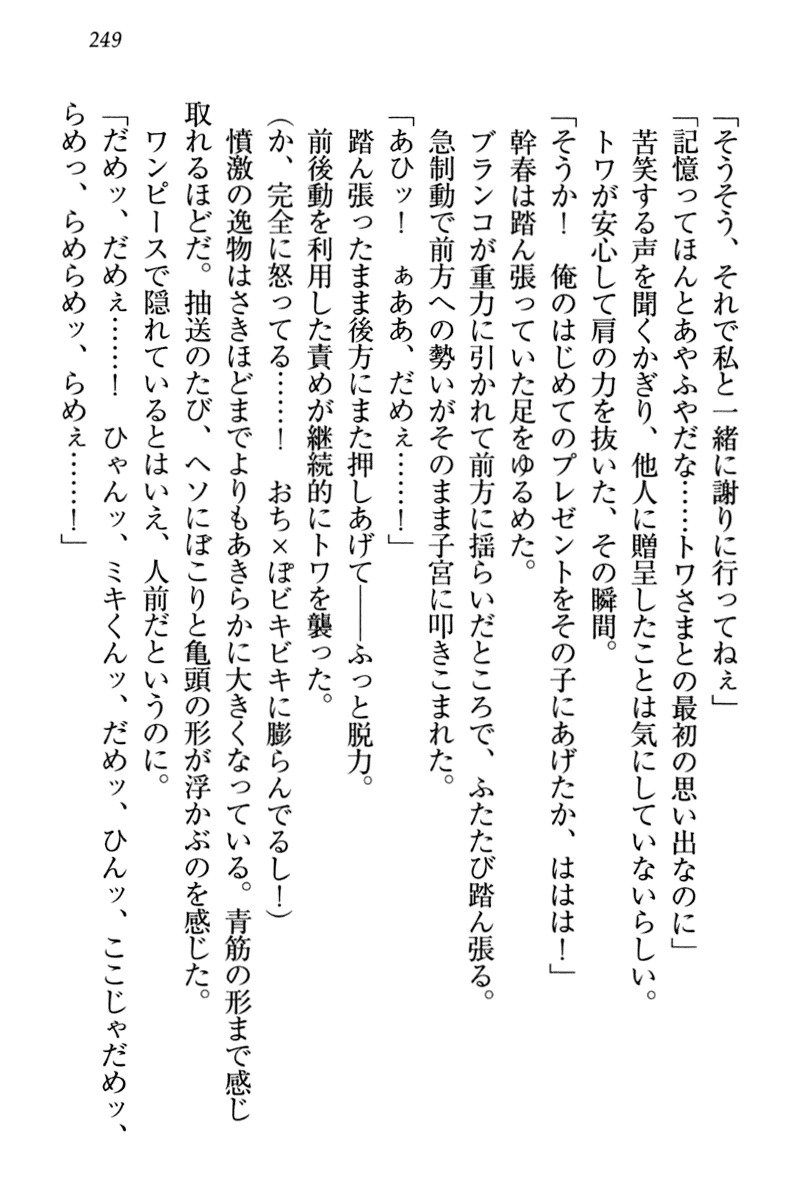 249
「そうそう、それで私と一緒に謝りに行ってねぇ」
「記憶ってほんとあやふやだな……トワさまとの最初の思い出なのに」
苦笑する声を聞くかぎり、他人に贈呈したことは気にしていないらしい。
トワが安心して肩の力を抜いた、その瞬間。
「そうか！　俺のはじめてのプレゼントをその子にあげたか、ははは！」
幹春は踏ん張っていた足をゆるめた。
ブランコが重力に引かれて前方に揺らいだところで、ふたたび踏ん張る。
急制動で前方への勢いがそのまま子宮に叩きこまれた。
「あひッ！　ぁああ、だめぇ……！」
踏ん張ったまま後方にまた押しあげて――ふっと脱力。
前後動を利用した責めが継続的にトワを襲った。
(か、完全に怒ってる……！　おち×ぽビキビキに膨らんでるし！)
憤激の逸物はさきほどまでよりもあきらかに大きくなっている。青筋の形まで感じ
取れるほどだ。抽送のたび、ヘソにぼこりと亀頭の形が浮かぶのを感じた。
ワンピースで隠れているとはいえ、人前だというのに。
「だめッ、だめぇ……！　ひゃんッ、ミキくんッ、だめッ、ひんッ、ここじゃだめッ、
らめっ、らめらめッ、らめぇ……！」